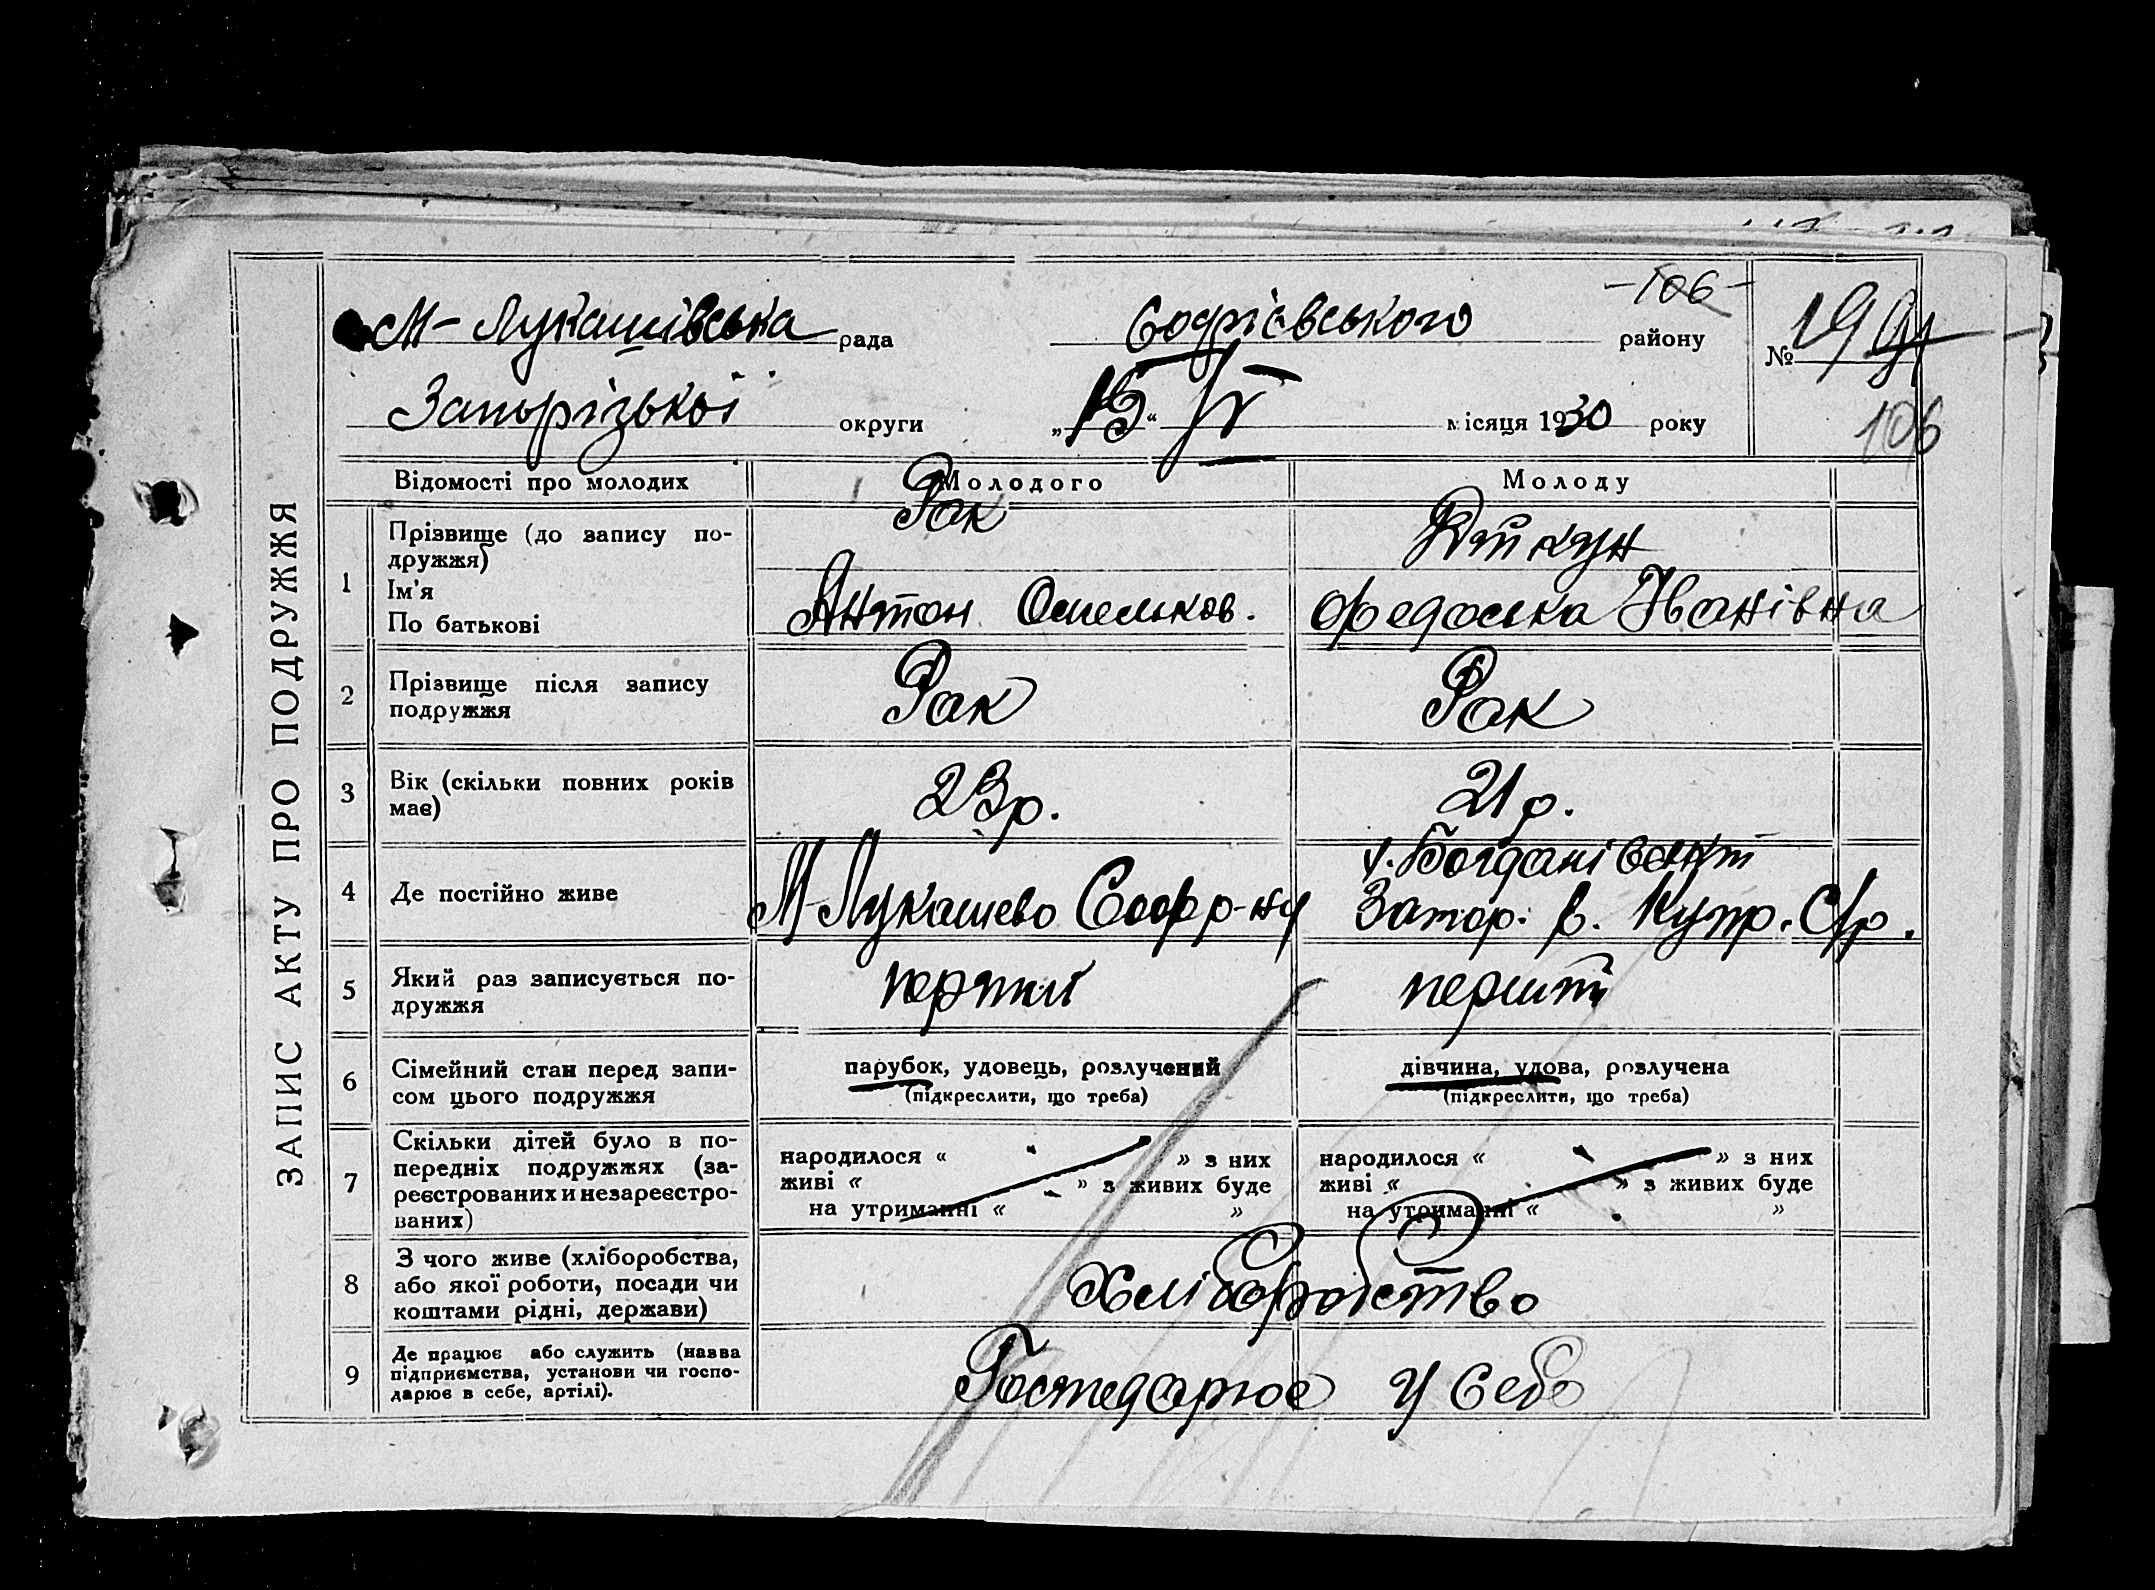 -106-
М-Лукашівська рада Софієвського району № 19
106
Запорізької округи „15“ IV місяця 1930 року
ЗАПИС АКТУ ПРО ПОДРУЖЖЯ
Відомості про молодих Молодого Молоду
1 Прізвище (до запису по-
дружжя) Рак
Ім'я
По батькові Антон Омельков. Федоська Іванівна
2 Прізвище після запису
подружжя Рак Рак
3 Вік (скільки повних років
має) 23р. 21р.
4 Де постійно живе М-Лукашево Софр-ну Запор. р. Купр. С/р.
5 Який раз записується по-
дружжя
6 Сімейний стан перед запи-
сом цього подружжя парубок, удовець, розлучений дівчина, удова, розлучена
(підкреслити, що треба) (підкреслити, що треба)
7 Скільки дітей було в по-
передніх подружжях (за-
реєстрованих и незареєстро-
ваних)
народилося « » з них народилося « » з них
живі « » з живих буде живі « » з живих буде
на утриманні « » на утриманні « »
8 З чого живе (хліборобства,
або якої роботи, посади чи
коштами рідні, держави) Хліборобство
9 Де працює або служить (назва
підприємства, установи чи госпо-
дарює в себе, артілі). Господарює у себе